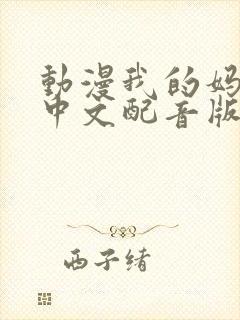 動漫我的妈
中文配音版
西子绪